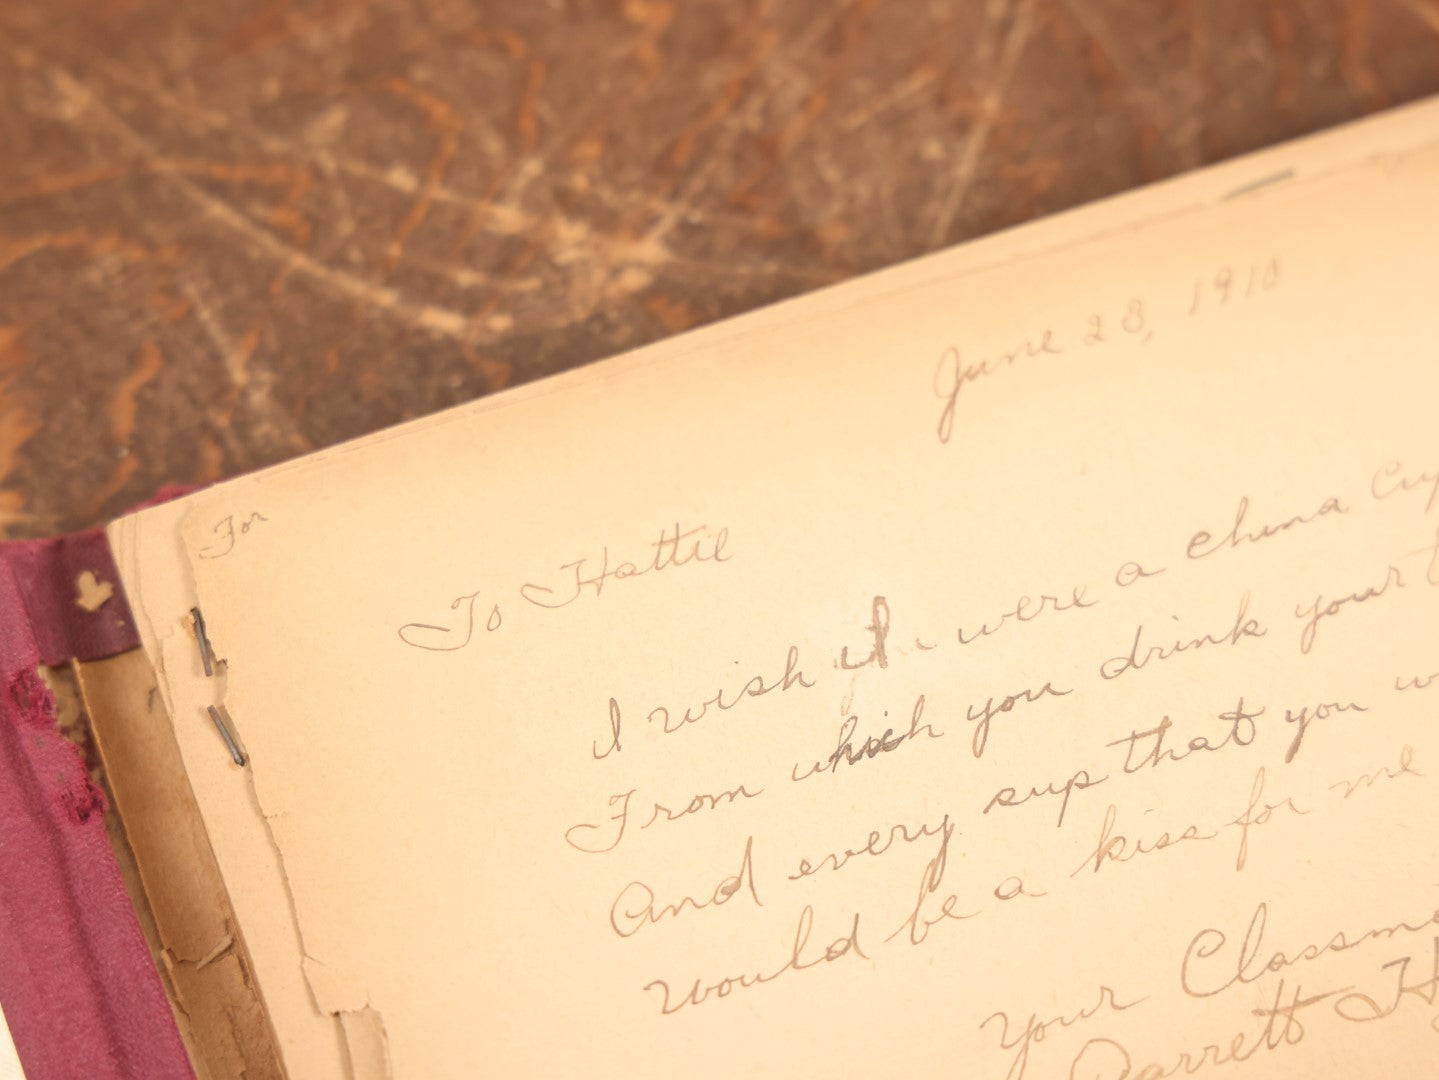 June 28, 1910
For
To Hattie
I wish I were a china Cup
From which you drink your t
And every sup that you w
Would be a kiss for me
Your Classm
Garrett H